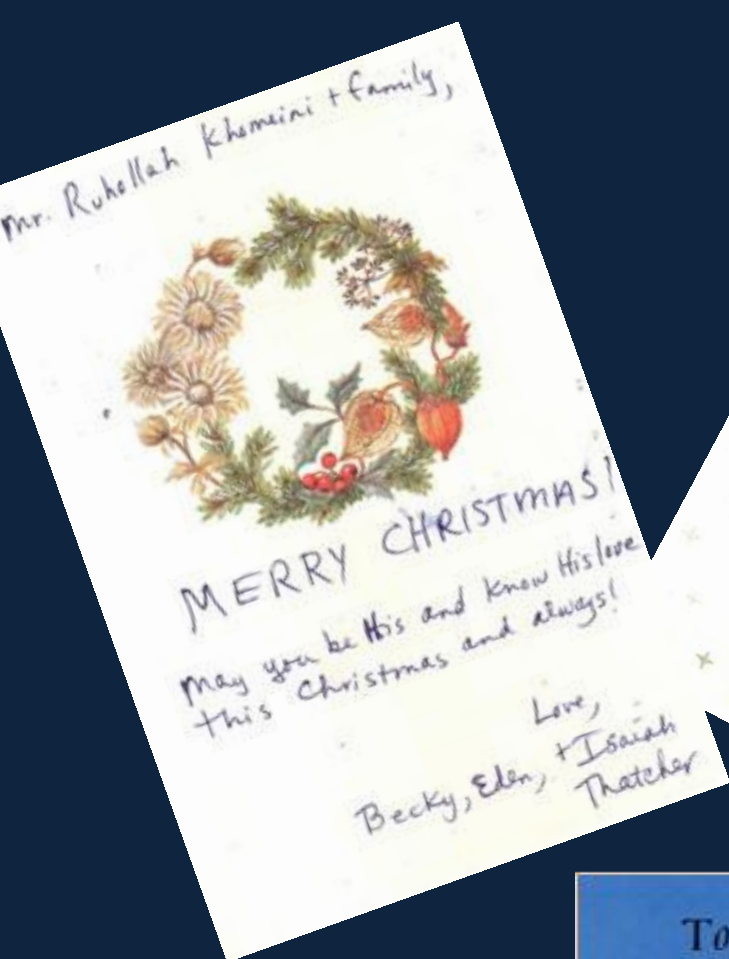 Mr. Ruhollah Khomeini + family,
MERRY CHRISTMAS!
May you be His and know His love
this Christmas and always!
Love,
Becky, Eden, + Isaiah
Thatcher
To